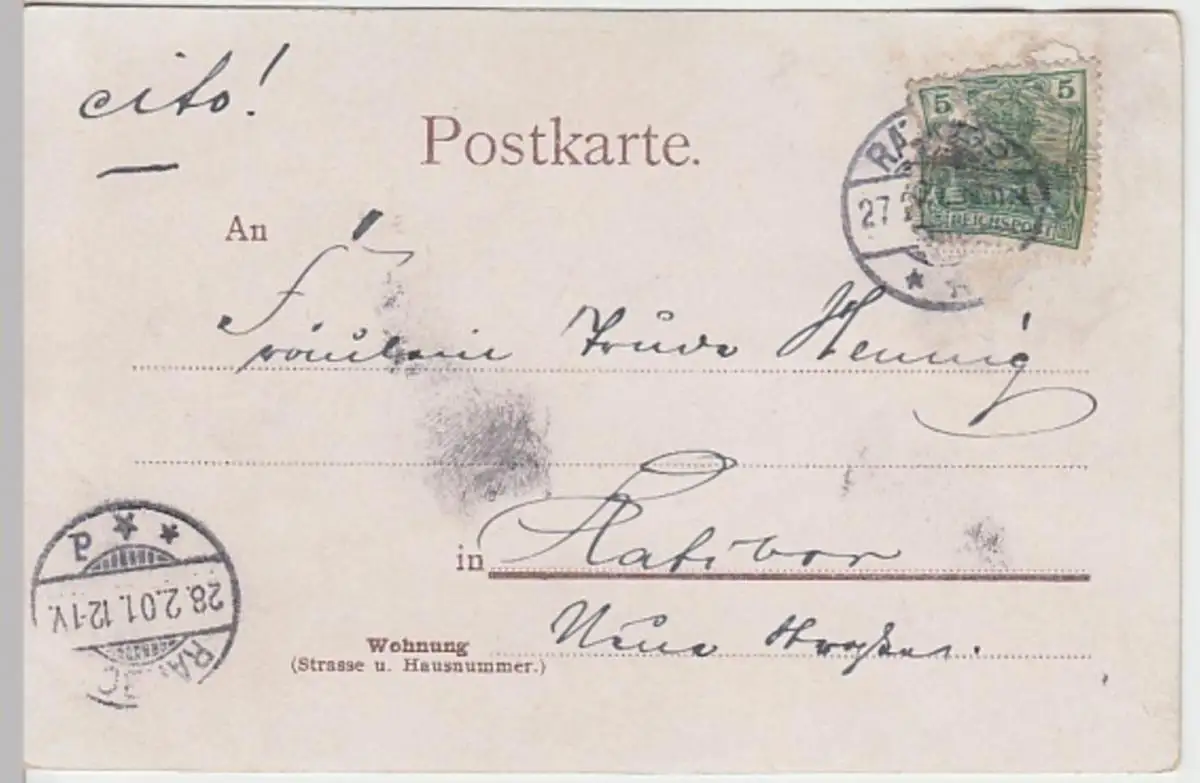 cito!
Postkarte.
5 5
REICHSPOST
27
An
Fräulein Trude Hennig
in Ratibor
Wohnung
(Strasse u. Hausnummer.)
Neue Strasse.
28.2.01.12-1V.